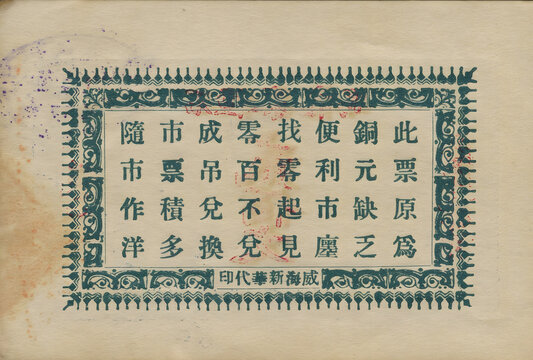 此票原爲
銅元缺乏
便利市廛
找零起見
零百不兌
成吊兌換
市票積多
隨市作洋
威海新華代印